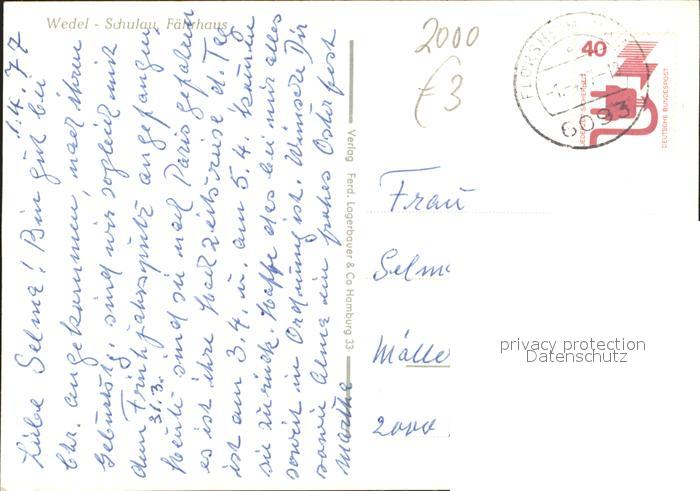 Wedel - Schulau, Fährhaus
1.4.77
Liebe Selma! Bin gut bei
Chr. angekommen, nach ihrem
Geburtstg. sind wir sogleich mit
dem Frühjahrsputz angefangen,
31.3.
Heute sind sie nach Paris gefahren
es ist ihre Hochzeitsreise d. Tag
ist am 3.4. u. am 5.4. kommen
sie zurück. Hoffe das bei mir alles
soweit in Ordnung ist. Wünsche Dir
sowie Alma ein frohes Osterfest
Marthe
Verlag Ferd. Lagerbauer & Co Hamburg 33
2000
€3
40
JEDERZEIT SICHERHEIT
DEUTSCHE BUNDESPOST
6093
Frau
Selma
Mölle
2000
privacy protection
Datenschutz